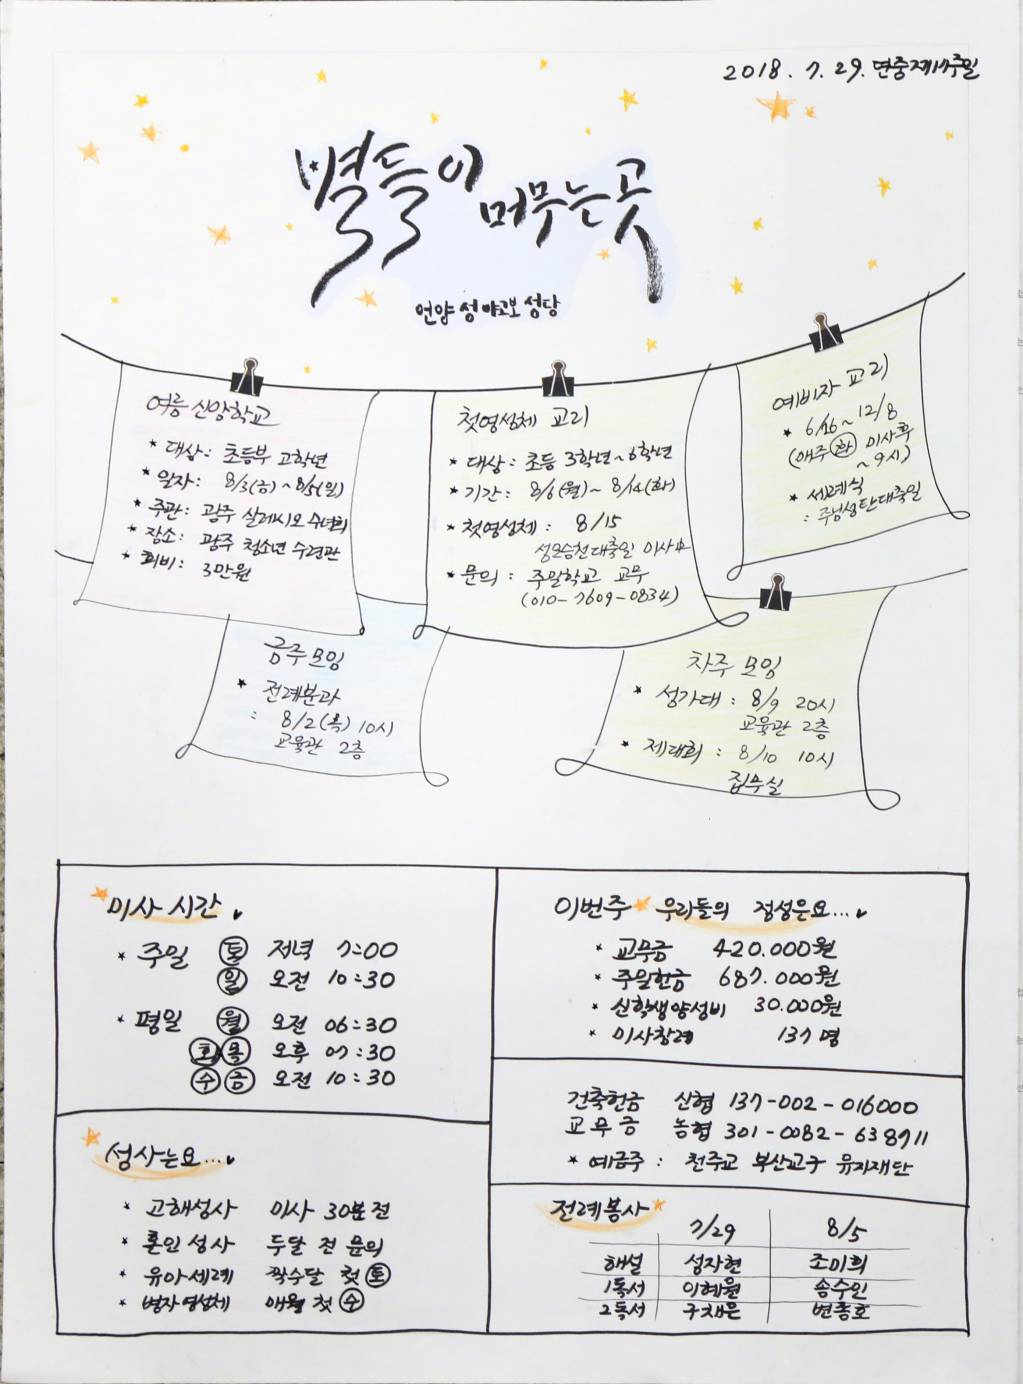 2018. 7. 29. 연중제17주일
별들이 머무는 곳
언양 성 야고보 성당
여름 신앙학교
* 대상: 초등부 고학년
* 일자: 8/3(금)~8/5(일)
* 주관: 광주 살레시오 수녀회
* 장소: 광주 청소년 수련관
* 회비: 3만원
첫영성체 교리
* 대상: 초등 3학년~6학년
* 기간: 8/6(월)~8/14(화)
* 첫영성체: 8/15
성모승천대축일 미사中
* 문의: 주일학교 교무
(010-7609-0834)
예비자 교리
* 6/26~12/8
(매주 화 미사후
~9시)
* 세례식
: 주님성탄대축일
금주모임
* 전례분과
: 8/2(목) 10시
교육관 2층
차주 모임
* 성가대: 8/9 20시
교육관 2층
* 제대회: 8/10 10시
집무실
미사 시간
* 주일 토 저녁 7:00
일 오전 10:30
* 평일 월 오전 06:30
화 목 오후 07:30
수 금 오전 10:30
성사는요...
* 고해성사 미사 30분 전
* 혼인 성사 두달 전 문의
* 유아세례 짝수달 첫 토
* 병자영성체 매월 첫 수
이번주 우리들의 정성은요...
* 교무금 420.000원
* 주일헌금 687.000원
* 신학생양성비 30.000원
* 미사참례 137명
건축헌금 신협 137-002-016000
교무금 농협 301-0082-638711
* 예금주: 천주교 부산교구 유지재단
전례봉사
7/29 8/5
해설 성자현 조미희
1독서 이혜원 송수인
2독서 구채은 변종호